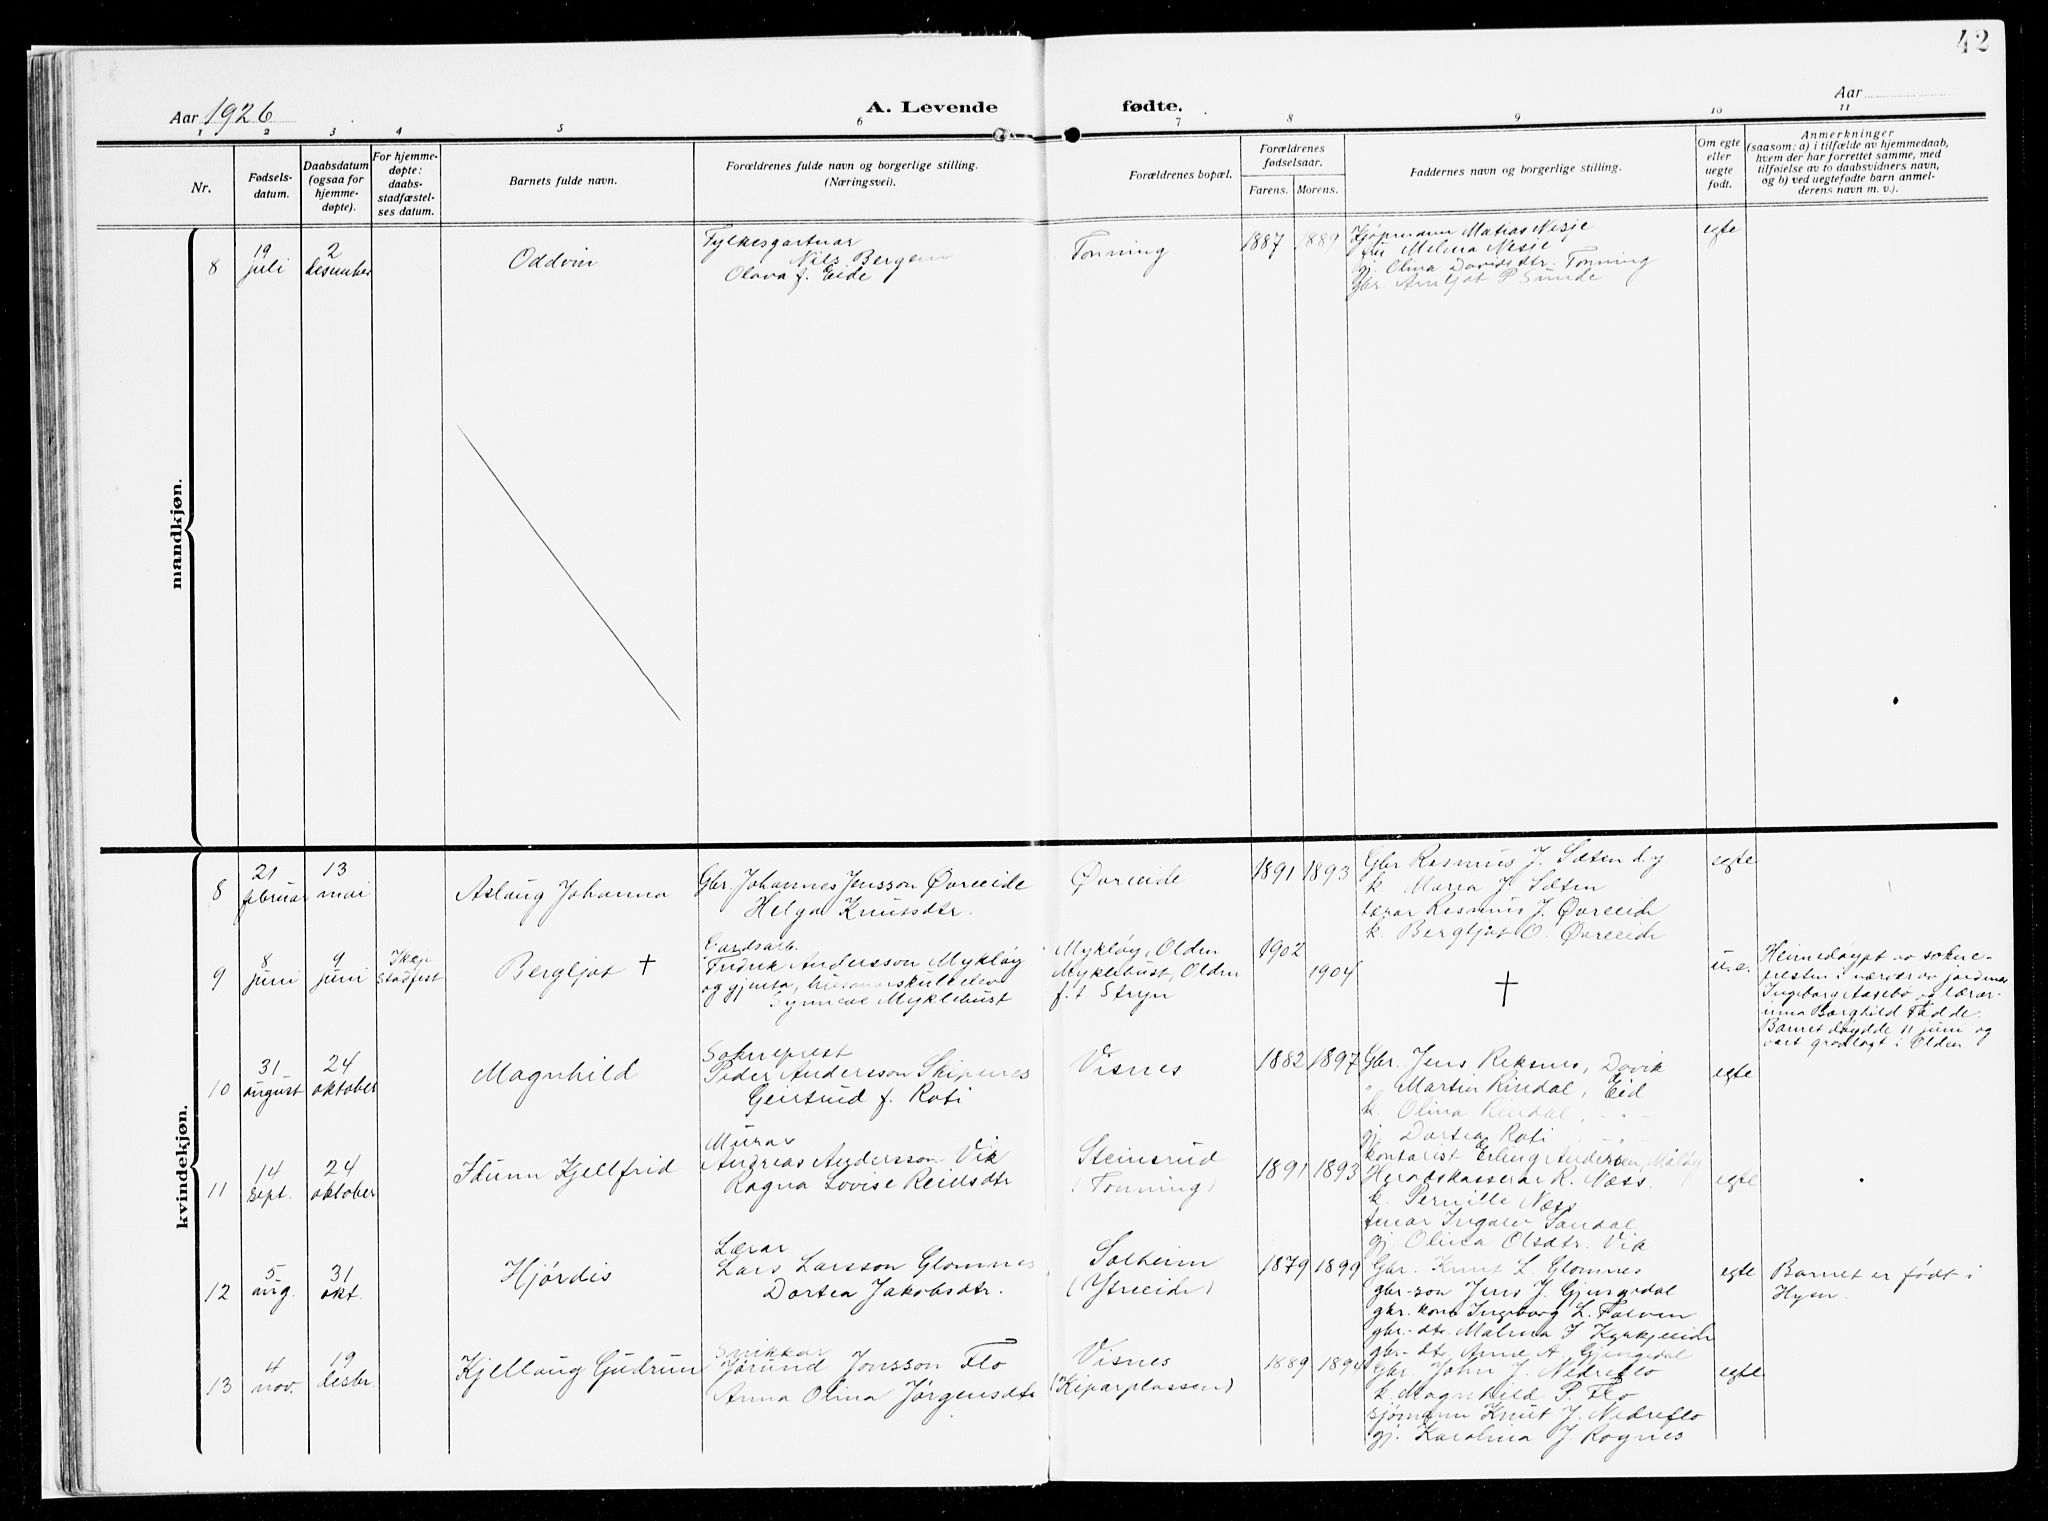 42
Aar 1926
A. Levende
fødte.
Aar
1 2 3 4 5 6 7 8 9 10 11
Nr.
Fødsels-
datum.
Daabsdatum
(ogsaa for
hjemme-
døpte).
For hjemme-
døpte:
daabs-
stadfæstel-
ses datum.
Barnets fulde navn.
Forældrenes fulde navn og borgerlige stilling.
(Næringsvei).
Forældrenes bopæl.
Forældrenes
fødselsaar.
Farens. Morens.
Faddernes navn og borgerlige stilling.
Om egte
eller
uegte
født.
Anmerkninger
(saasom: a) i tilfælde av hjemmedaab,
hvem der har forrettet samme, med
tilføielse av to daabsvidners navn,
og b) ved uegtefødte barn anmel-
derens navn m. v.).
mandkjøn.
8
19
juli
2
desember
Oddvin
Fylkesgartnar
Nils Bergem
Olava f. Eide
Tonning
1887 1889
Kjøpmann Matias Nesje
fru Melina Nesje
gj. Olina Davidsdtr. Tonning
gbr. Arnljot P Sunde
egte
kvindekjøn.
8
21
februar
13
mai
Aslaug Johanna
Gbr. Johannes Jensson Øvreeide
Helga Knutsdtr.
Øvreeide
1891 1893
Gbr. Rasmus J. Sæten d.y.
k. Maria J. Sæten
lærar Rasmus J. Øvreeide
k. Bergljot O. Øvreeide
egte
9
8
juni
9
juni
Ikkje
stadfest
Bergljot †
Gardsarb.
Fredrik Andersson Mykløy
og gjenta, husmorskuleelev
Synneve Myklebust
Mykløy, Olden
Myklebust, Olden
f.t Stryn
1902
1904
†
u.e.
Heimedøypt av sokne-
presten i nærvær av jordmor
Ingeborg Aasebø og lærar-
inna Borghild Fadde.
Barnet døydde 11 juni og
vart gravlagt i Olden
10
31
august
24
oktober
Magnhild
Sokneprest
Peder Andersson Skipenes
Geirtrud f. Roti
Visnes
1882 1897
Gbr. Jens Reksnes, Davik
" Martin Rindal, Eid
k. Olina Rindal, - " -
gj. Dortea Roti
egte
11
14
sept.
24
oktober
Idunn Kjellfrid
Murar
Andreas Andersson Vik
Ragna Lovise Reidsdtr
Steinsrud
(Tonning)
1891 1893
Kontorist Erling Andersen, Måløy
Heradskasserar R. Næss.
k. Pernille Næss
fenar Ingalv Sandal
gj. Olina Olsdtr. Vik
egte
12
5
aug.
31
okt.
Hjørdis
Lærar
Lars Larsson Glomnes
Dortea Jakobsdtr.
Solheim
(Ytreeide)
1879 1899
Gbr. Knut L. Glomnes
gbr-son Jens J. Gjengedal
gbr. kone Ingeborg L. Tarven
gbr.-dtr. Malena J Kyrkjeeide
gbr-dtr. Anne A. Gjengedal
egte
Barnet er født i
Hyen.
13
4
nov.
19
desbr.
Kjellaug Gudrun
Snikkar
Jørund Jonsson Flo
Anna Olina Jørgensdtr
Visnes
(Kiparplassen)
1889 1894
Gbr. John J. Nedreflo
k. Magnhild P. Flo
sjømann Knut J. Nedreflo
gj. Karolina J. Rognes
egte